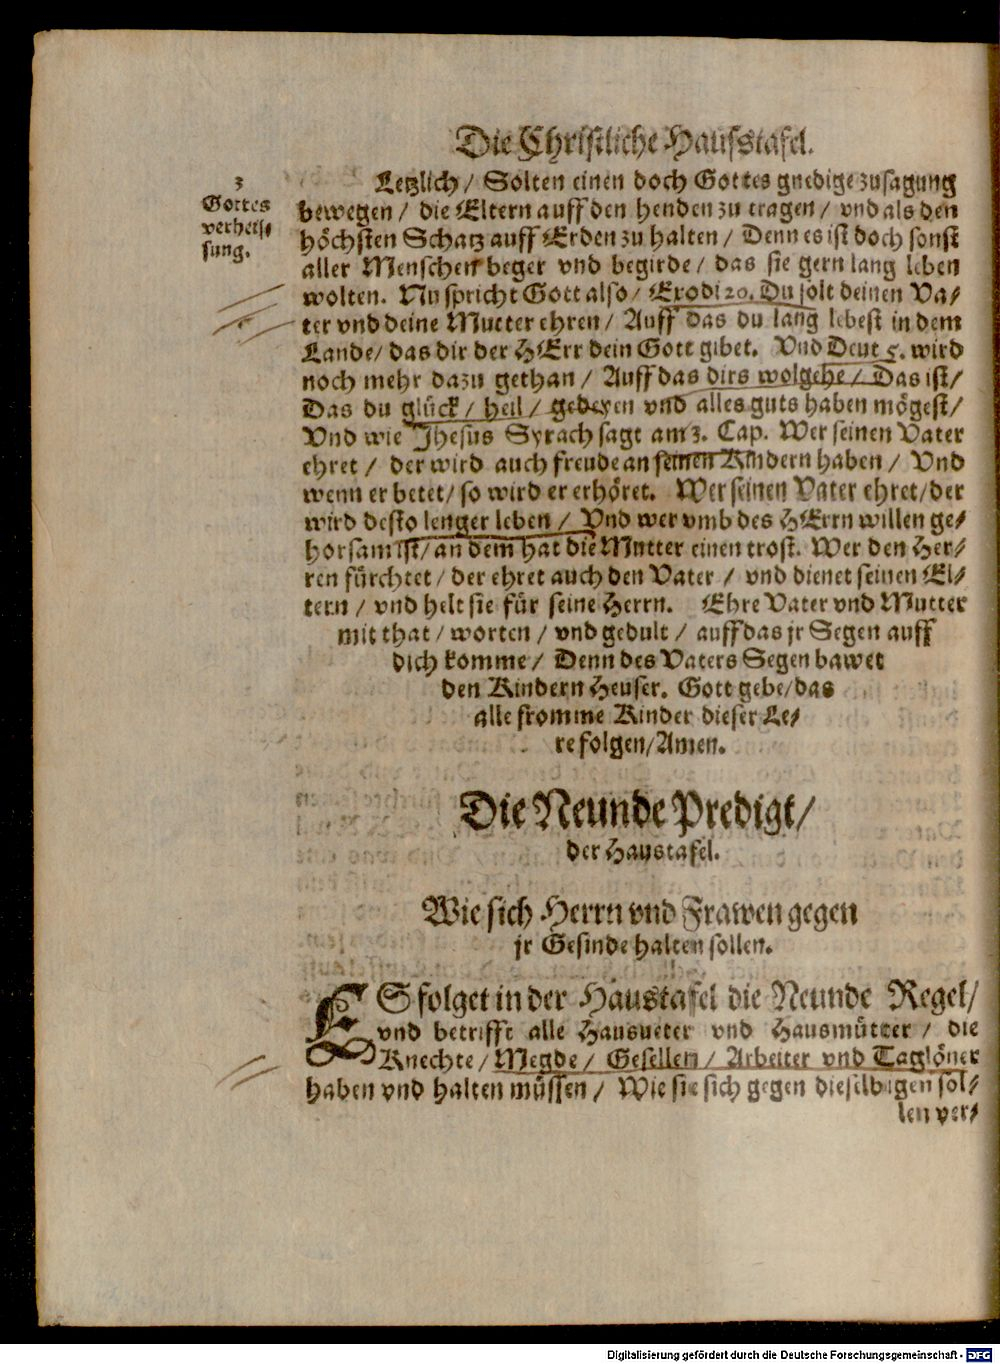 Die Christliche Hausstafel.
3
Gottes
verheis⸗
sung.
Letzlich / Solten einen doch Gottes gnedige zusagung
bewegen / die Eltern auff den henden zu tragen / vnd als den
höchsten Schatz auff Erden zu halten / Denn es ist doch sonst
aller Menschen beger vnd begirde / das sie gern lang leben
wolten. Nu spricht Gott also / Exodi 20. Du solt deinen Va⸗
ter vnd deine Mutter ehren / Auff das du lang lebest in dem
Lande / das dir der HErr dein Gott gibet. Vnd Deut 5. wird
noch mehr dazu gethan / Auff das dirs wolgehe / Das ist /
Das du glück / heil / gedeyen vnd alles guts haben mögest /
Vnd wie Jhesus Syrach sagt am 3. Cap. Wer seinen Vater
ehret / der wird auch freude an seinen Kindern haben / Vnd
wenn er betet / so wird er erhöret. Wer seinen Vater ehret / der
wird desto lenger leben / Vnd wer vmb des HErrn willen ge⸗
horsam ist / an dem hat die Mutter einen trost. Wer den Her⸗
ren fürchtet / der ehret auch den Vater / vnd dienet seinen El⸗
tern / vnd helt sie für seine Herrn. Ehre Vater vnd Mutter
mit that / worten / vnd gedult / auff das jr Segen auff
dich komme / Denn des Vaters Segen bawet
den Kindern Heuser. Gott gebe / das
alle fromme Kinder dieser Le⸗
re folgen / Amen.
Die Neunde Predigt /
der Haustafel.
Wie sich Herrn vnd Frawen gegen
jr Gesinde halten sollen.
ES folget in der Haustafel die Neunde Regel /
vnd betrifft alle Hausueter vnd Hausmütter / die
Knechte / Megde / Gesellen / Arbeiter vnd Taglöner
haben vnd halten müssen / Wie sie sich gegen dieselbigen sol⸗
len ver⸗
Digitalisierung gefördert durch die Deutsche Forschungsgemeinschaft - DFG